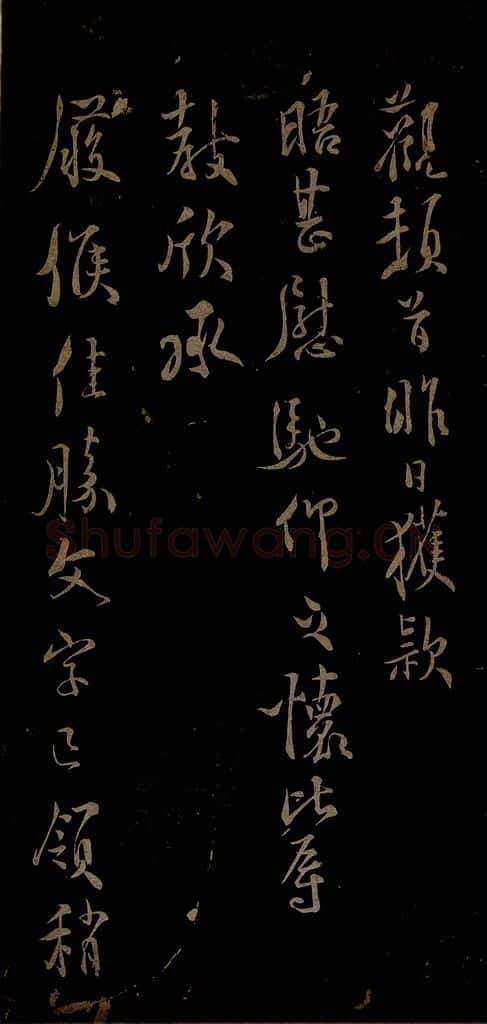 觀頓首昨日獲款
晤甚慰馳仰之懷比辱
教欣承
嚴候佳勝文字已領稍
Shufawang.cn